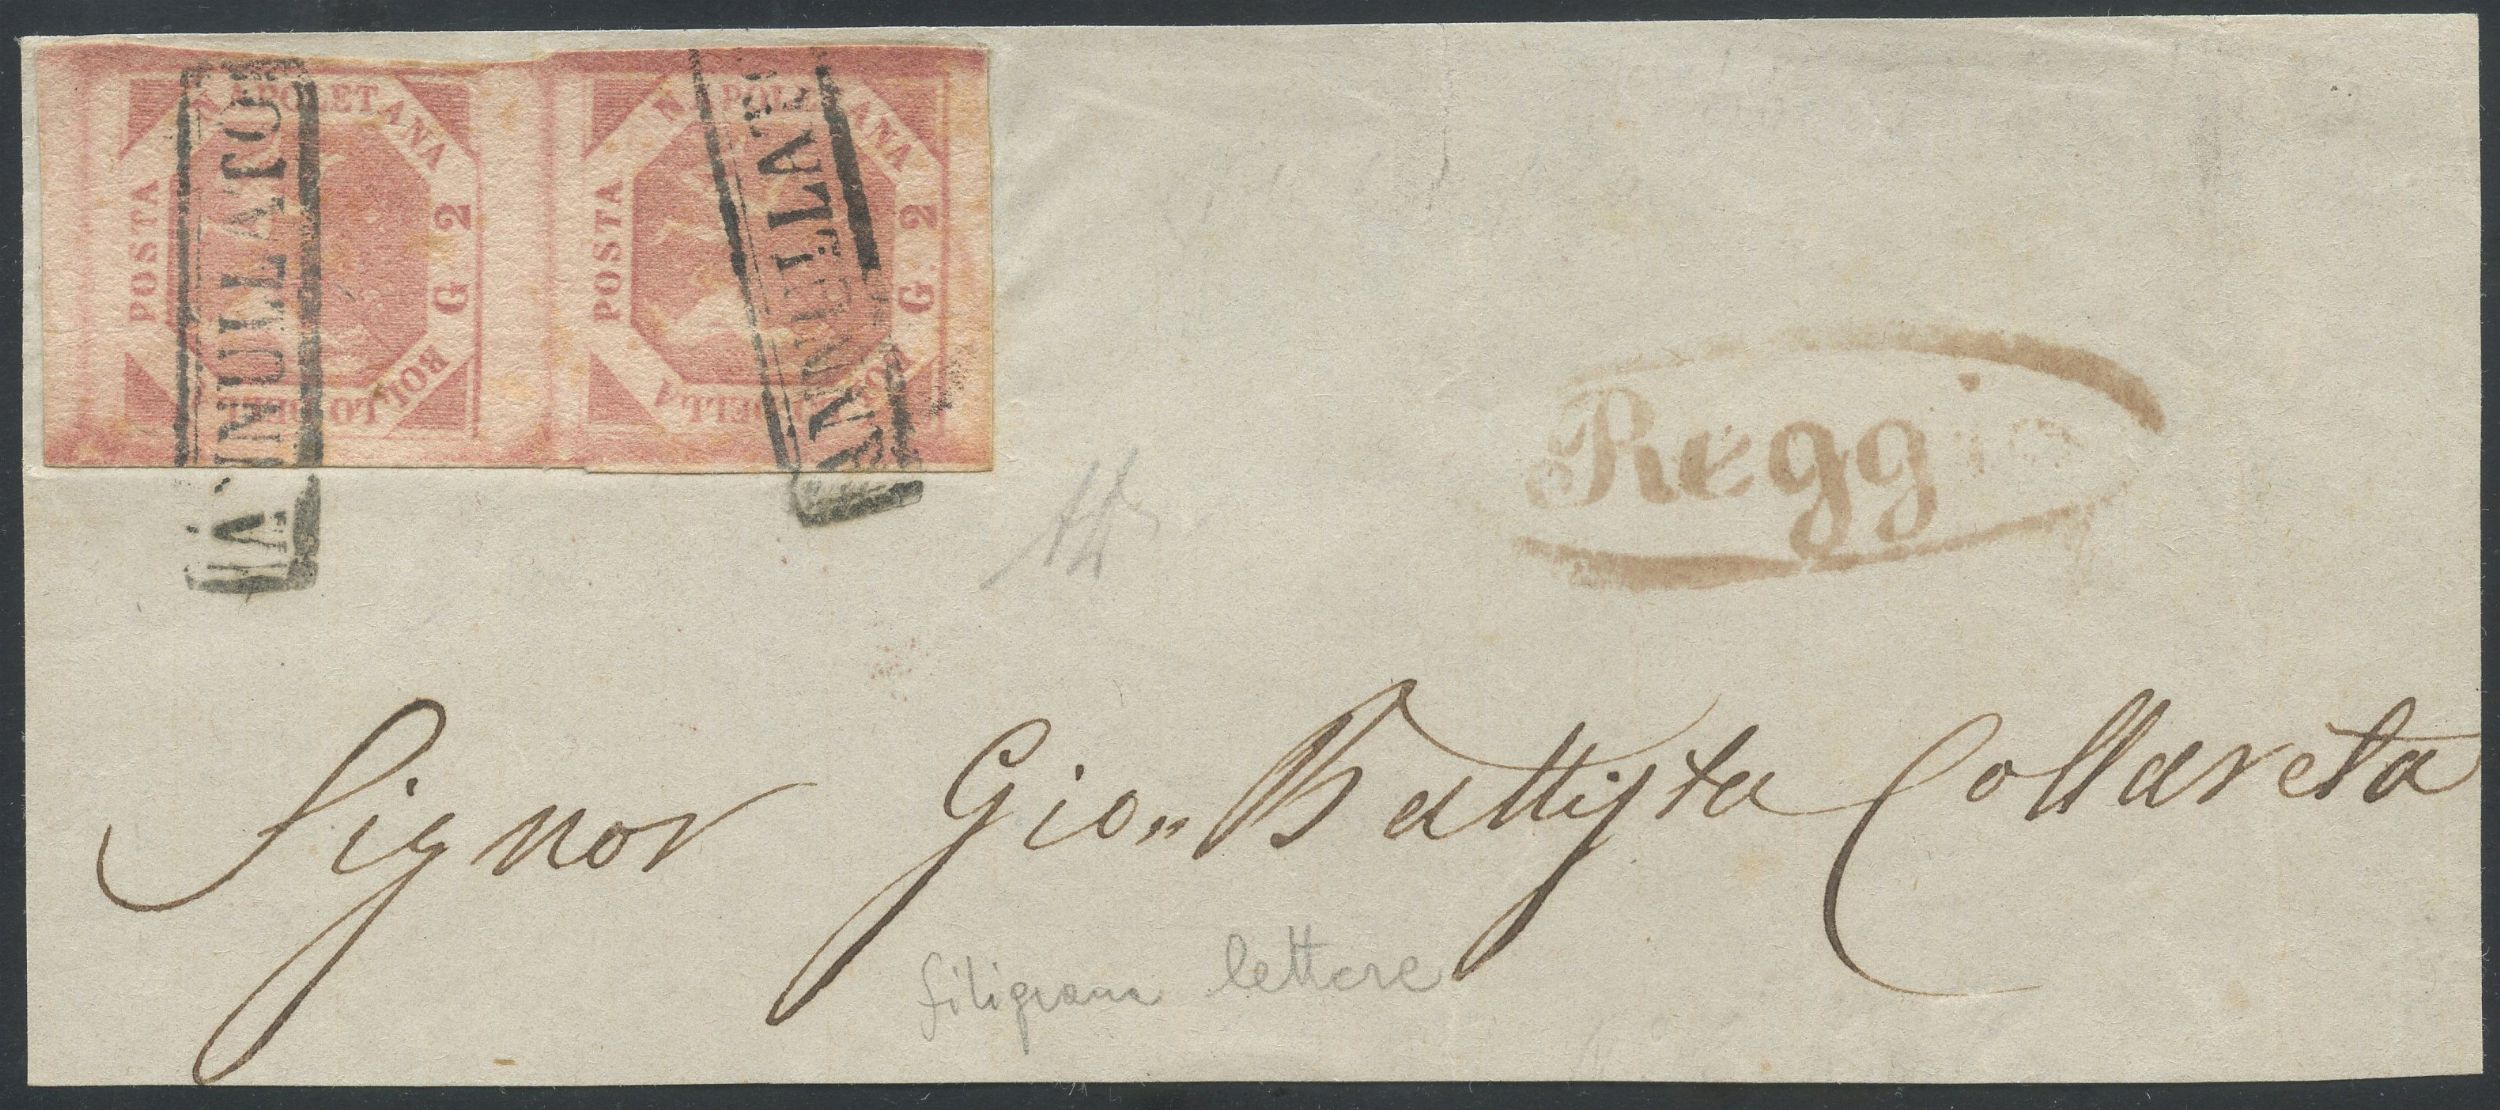 POSTA NAPOLETANA G. 2 BOLLO DELLA
ANNULLATO
POSTA NAPOLETANA G. 2 BOLLO DELLA
ANNULLATO
Reggio
Signor Gio,, Battista Collareta
filigrana lettere